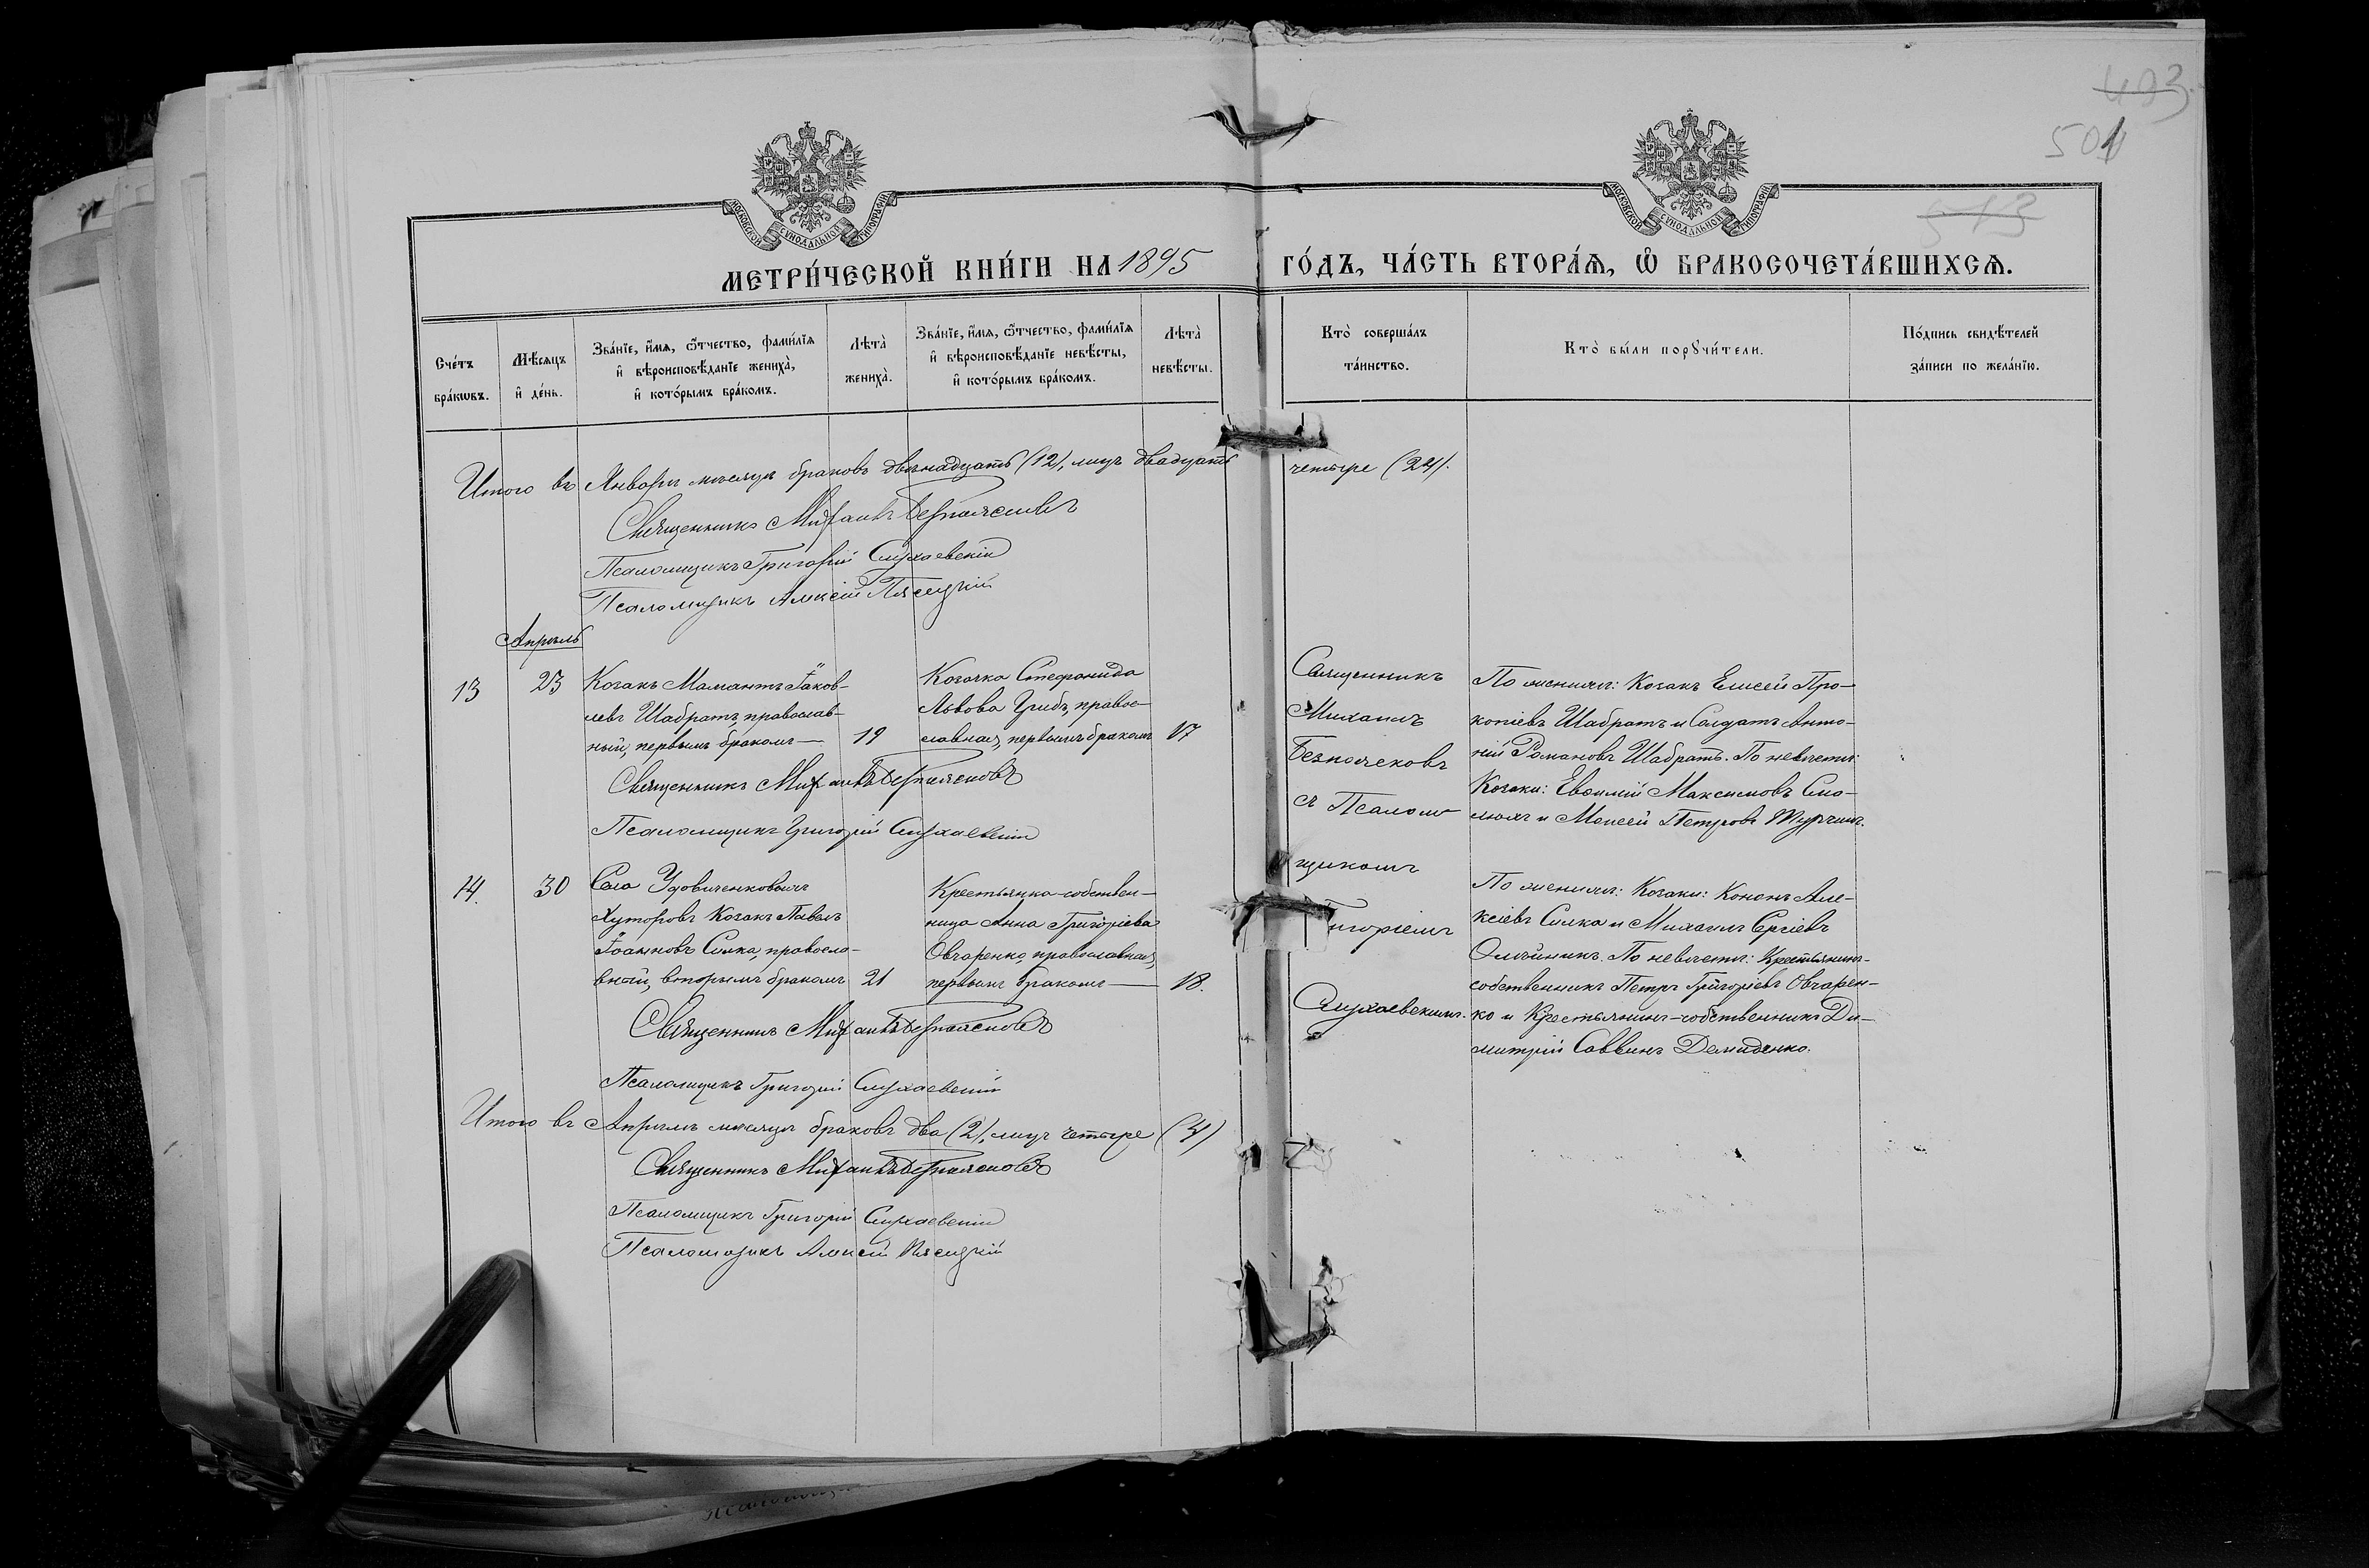 493.
501
513
МОСКОВСКОЙ СѴНОДАЛЬНОЙ ТИПОГРАФІИ
МОСКОВСКОЙ СѴНОДАЛЬНОЙ ТИПОГРАФІИ
МЕТРИ́ЧЕСКОЙ КНИ́ГИ НА 1895 ГО́ДЪ, ЧА́СТЬ ВТОРА́Я, Ѽ БРАКОСОЧЕТА́ВШИХСЯ.
Сче́тъ бра́кѡвъ.
Мѣ́сяцъ и҆ де́нь.
Зва́нїе, и҆́мя, ѻ҆́тчество, фами́лїя и҆ вѣроисповѣ́данїе жениха̀, и҆ кото́рымъ бра́комъ.
Лѣта̀ жениха̀.
Зва́нїе, и҆́мя, ѻ҆́тчество, фами́лїя и҆ вѣроисповѣ́данїе невѣ́сты, и҆ кото́рымъ бра́комъ.
Лѣта̀ невѣ́сты.
Кто̀ соверша́лъ та́инство.
Кто̀ бы́ли порꙋчи́тели.
По́дпись свидѣ́телей за́писи по жела́нїю.
Итого въ Январѣ мѣсяцѣ браковъ двѣнадцать (12), лицъ двадцать четыре (24).
Священникъ Михаилъ Безпоясковъ
Псаломщикъ Григорій
Псаломщикъ Алексій Пясецкій
Апрѣль
13
23
Козакъ Мамантъ Іаков-
левъ Шабратъ, православ-
ный, первымъ бракомъ —
19
Козачка Стефанида
Львова Грибъ, правос-
лавная, первымъ бракомъ
17
Священникъ
Михаилъ
Безпоясковъ
съ Псалом-
щикомъ
Григоріемъ
По женихѣ: Козакъ Елисей Про-
копіевъ Шабратъ и Солдатъ Анто-
ній Романовъ Шабратъ. По невѣстѣ:
Козаки: Евѳимій Максимовъ
и Моисей Петровъ
Священникъ Михаилъ Безпоясковъ
Псаломщикъ Григорій
14.
30
Села Удовиченковыхъ
Хуторовъ Козакъ Павелъ
Іоанновъ Сика, правосла-
вный, вторымъ бракомъ
21
Крестьянка-собствен-
ница Анна Григоріева
Овчаренко, православная,
первымъ бракомъ —
18.
По женихѣ: Козаки: Кононъ Але-
ксіевъ Сика и Михаилъ Сергіевъ
Олѣйникъ. По невѣстѣ: Крестьянинъ-
собственникъ Петръ Григоріевъ Овчарен-
ко и Крестьянинъ-собственникъ Ди-
митрій Саввинъ Демиденко.
Священникъ Михаилъ Безпоясковъ
Псаломщикъ Григорій
Итого въ Апрѣлѣ мѣсяцѣ браковъ два (2), лицъ четыре (4)
Священникъ Михаилъ Безпоясковъ
Псаломщикъ Григорій
Псаломщикъ Алексій Пясецкій